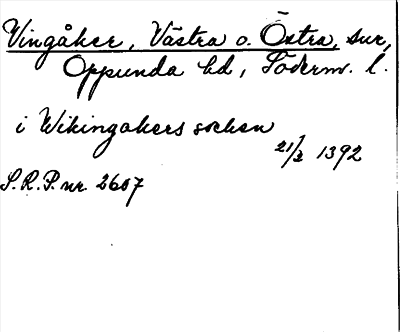 Vingåker, Västra o. Östra, sur,
Oppunda hd, Söderm. l.
i Wikingakers socken
21/2 1392
S.R.P. nr 2607